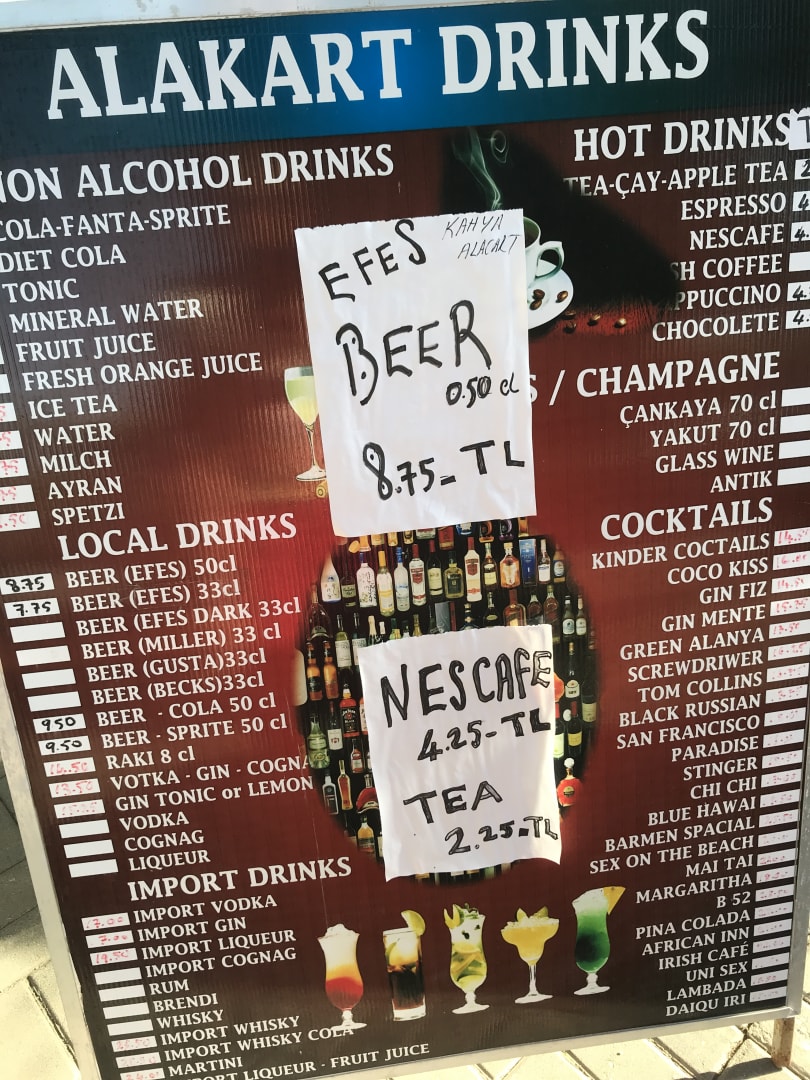 ALAKART DRINKS
NON ALCOHOL DRINKS
COLA-FANTA-SPRITE
DIET COLA
TONIC
MINERAL WATER
FRUIT JUICE
FRESH ORANGE JUICE
ICE TEA
WATER
MILCH
AYRAN
SPETZI
LOCAL DRINKS
8.75 BEER (EFES) 50cl
7.75 BEER (EFES) 33cl
BEER (EFES DARK 33cl
BEER (MILLER) 33 cl
BEER (GUSTA)33cl
BEER (BECKS)33cl
9.50 BEER - COLA 50 cl
9.50 BEER - SPRITE 50 cl
RAKI 8 cl
VOTKA - GIN - COGNA
GIN TONIC or LEMON
VODKA
COGNAG
LIQUEUR
IMPORT DRINKS
17.00 IMPORT VODKA
IMPORT GIN
IMPORT LIQUEUR
IMPORT COGNAG
RUM
BRENDI
WHISKY
IMPORT WHISKY
IMPORT WHISKY COLA
MARTINI
IMPORT LIQUEUR - FRUIT JUICE
KAHYA
ALACART
EFES
BEER
0.50 cl
8.75 - TL
NESCAFE
4.25 - TL
TEA
2.25 - TL
HOT DRINKS
TEA-ÇAY-APPLE TEA
ESPRESSO
NESCAFE
SH COFFEE
PPUCCINO
CHOCOLETE
S / CHAMPAGNE
ÇANKAYA 70 cl
YAKUT 70 cl
GLASS WINE
ANTIK
COCKTAILS
KINDER COCTAILS
COCO KISS
GIN FIZ
GIN MENTE
GREEN ALANYA
SCREWDRIWER
TOM COLLINS
BLACK RUSSIAN
SAN FRANCISCO
PARADISE
STINGER
CHI CHI
BLUE HAWAI
BARMEN SPACIAL
SEX ON THE BEACH
MAI TAI
MARGARITHA
B 52
PINA COLADA
AFRICAN INN
IRISH CAFÉ
UNI SEX
LAMBADA
DAIQU IRI